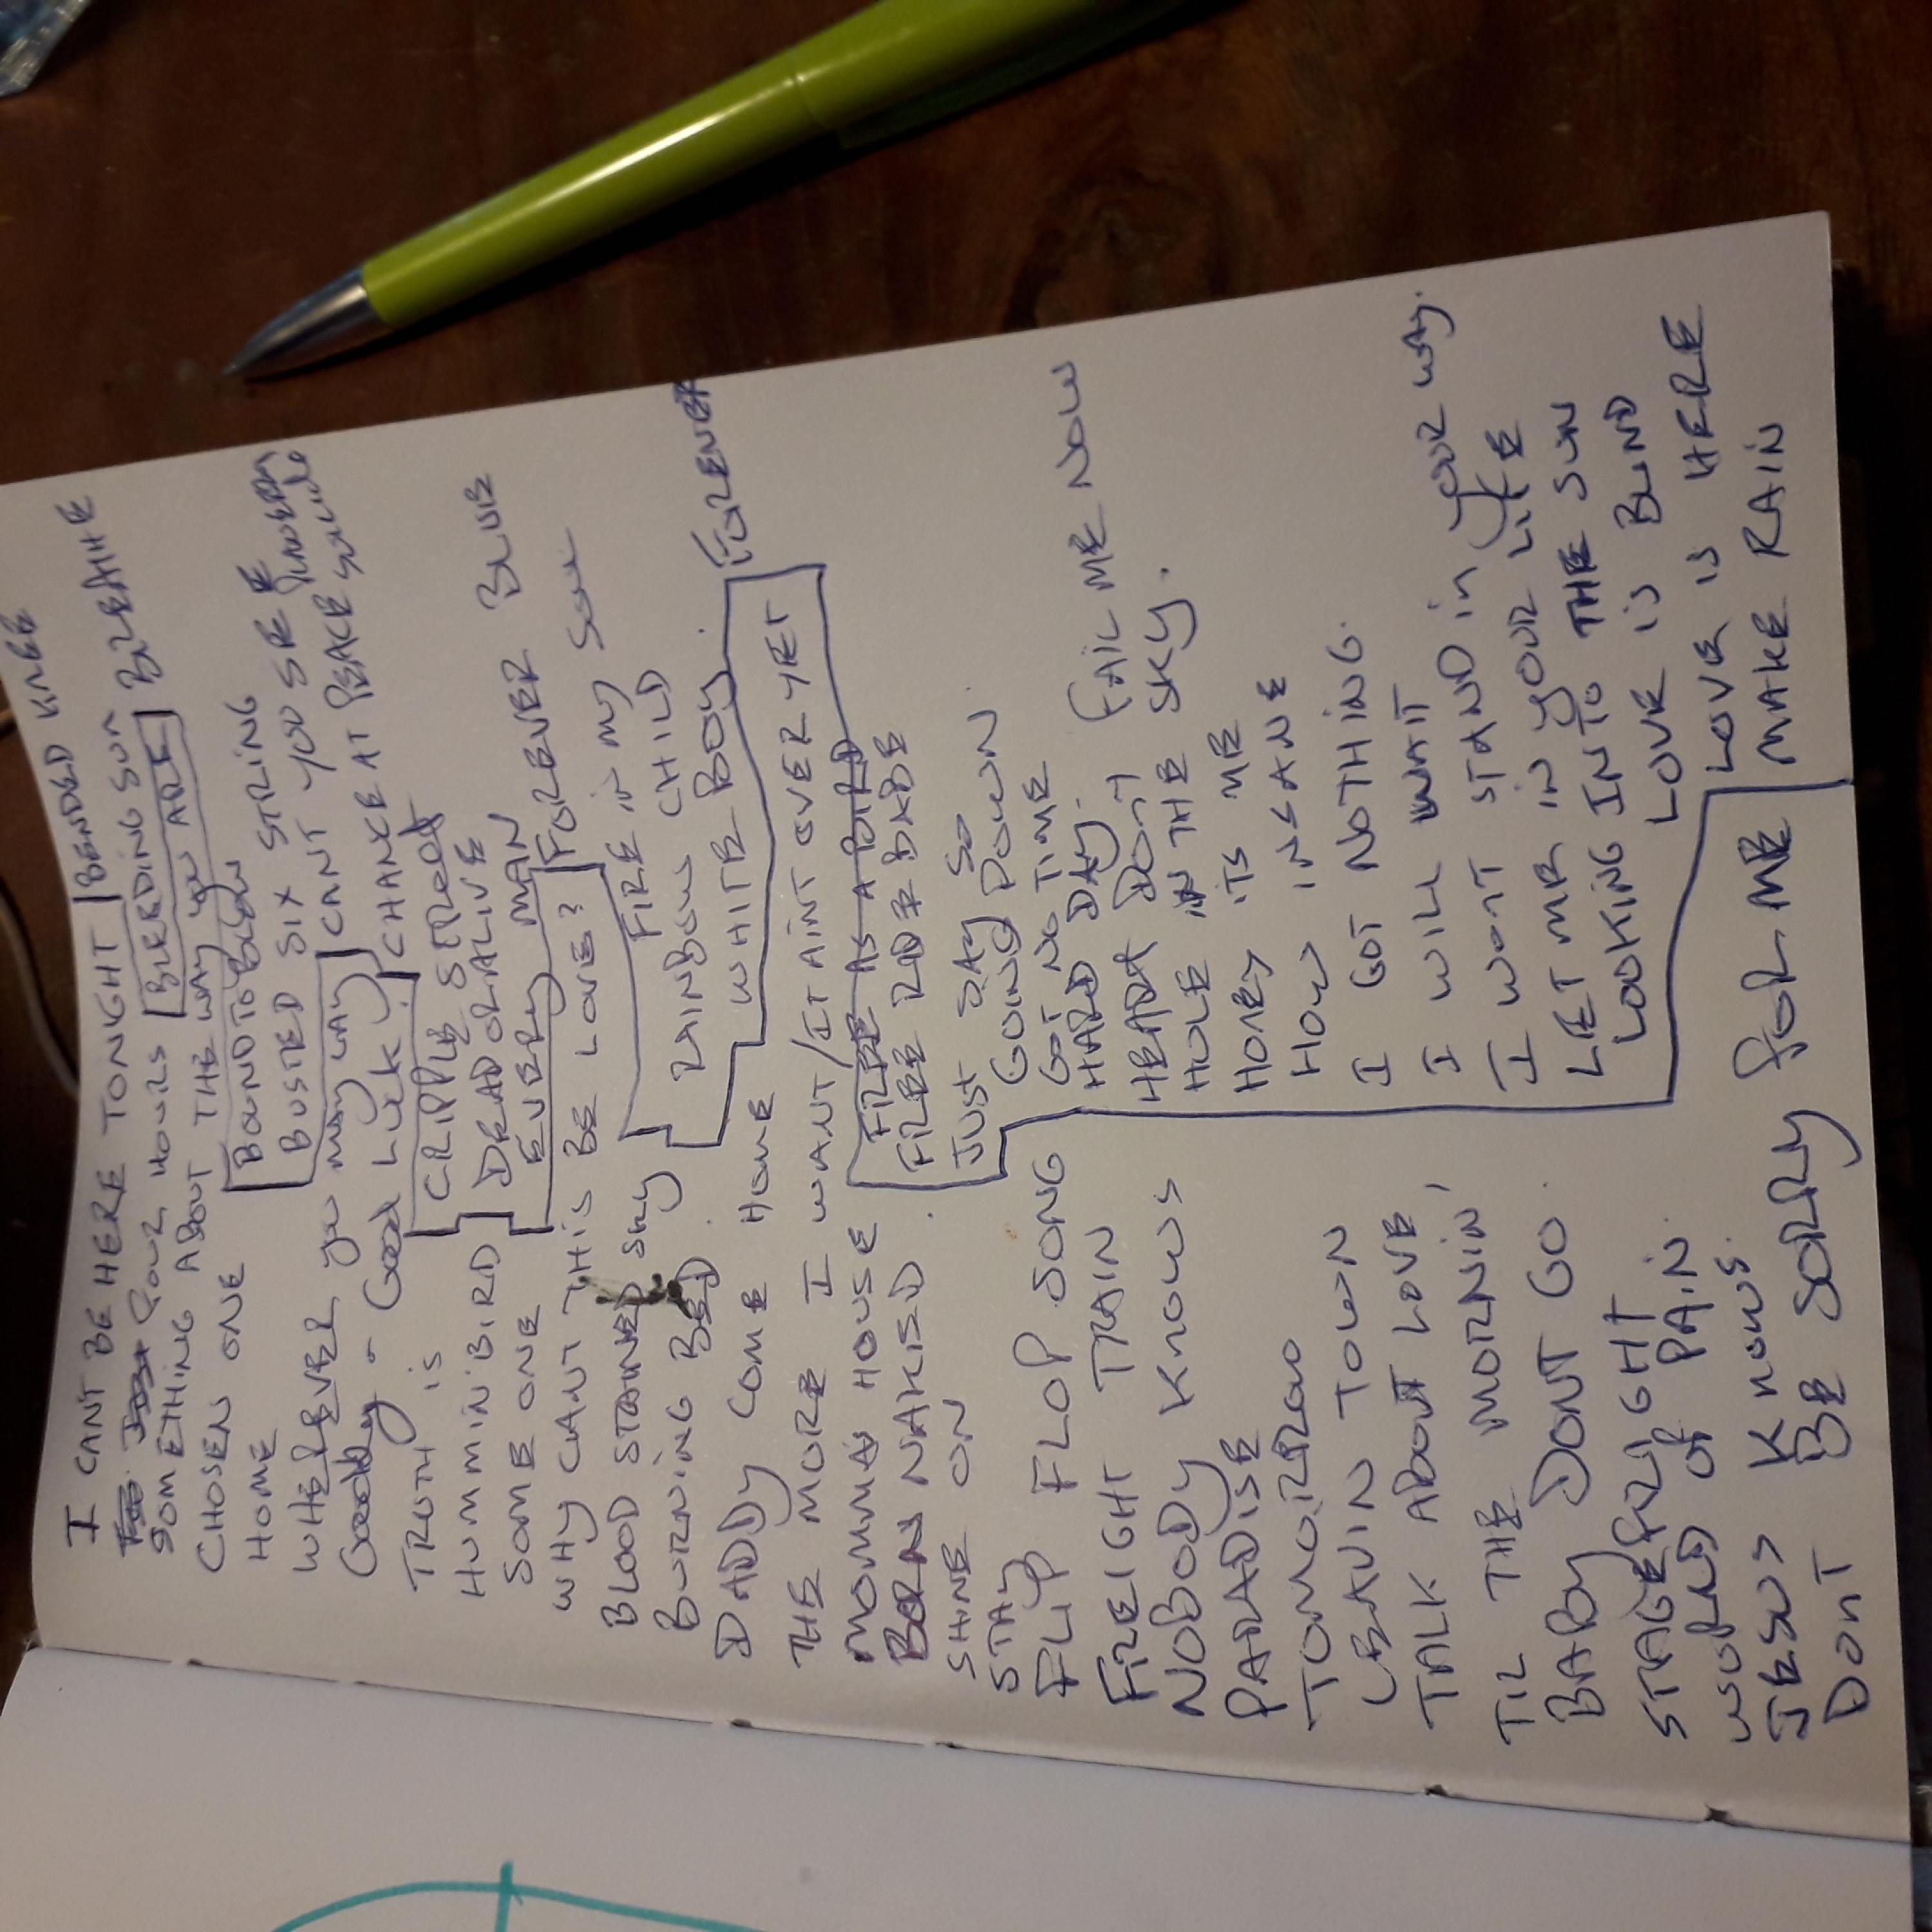 I CANT BE HERE TONIGHT
FOUR HOURS
SOMETHING ABOUT THE WAY YOU
CHOSEN ONE
HOME
WHEREVER you may LAY
Goodby - Good Luck
TRUTH is
HUMMINBIRD
SOME ONE
WHY CANT THIS BE LOVE?
BLOOD STAINED SKY
BURNING BED.
DADDY COME HOME HOME
THE MORE I WANT / IT AINT OVER YET
MOMMA HOUSE
BORN NAKED.
SHINE ON
STAY
FLIP FLOP SONG
FREIGHT TRAIN
NOBODY KNOWS
PARADISE
TOMORROW
LEAVIN TOWN
TALK ABOUT LOVE
TIL THE MORNIN'
BABY DONT GO.
STAGEFRIGHT
WORLD OF PAIN.
JESUS KNOWS.
DONT BE SORRY FOR ME
BENDED KNEE
BLEEDING SUN
ARE BREATHE
BOUND TO BLOW
BUSTED SIX STRING
CANT YOU SEE
CHANCE AT PEACE
CRIPPLE CREEK
DEAD OR ALIVE
EVERY MAN
FOREVER BLUE
FIRE in my Soul
RAINBOW CHILD
WHITE BOY.
FOREVER
FREE AS A BIRD
FREE RIDE BABE
JUST SAY SO
GOING DOWN
GOT NO TIME
HARD DAY.
HEART DON'T FAIL ME NOW
HOLE IN THE SKY.
HONEY ITS ME
HOW INSANE
I GOT NOTHING.
I WILL WAIT
I WONT STAND in your way.
LET ME IN YOUR LIFE
LOOKING INTO THE SUN
LOVE IS BLIND
LOVE IS HERE
MAKE RAIN